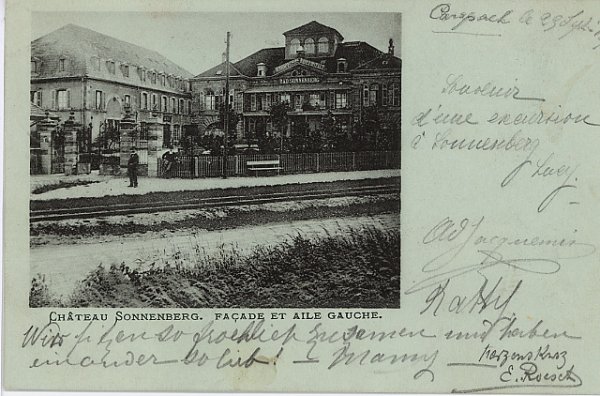 Carspach le 29 Sept
BAD SONNENBERG
Souvenir
d'une excursion
à Sonnenberg
Lucy.
Ad Jacquemin
Kathy
CHÂTEAU SONNENBERG. FAÇADE ET AILE GAUCHE.
Wir sitzen so froehlich zusamen und haben
einander so lieb! — Manny
E. Roesch